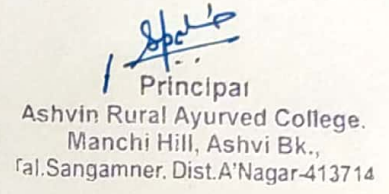 Principal
Ashvin Rural Ayurved College.
Manchi Hill, Ashvi Bk.,
Tal.Sangamner. Dist.A'Nagar-413714